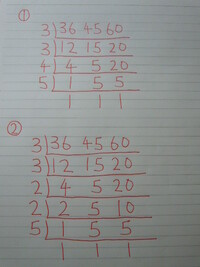 ①
3)36 45 60
3)12 15 20
4)4 5 20
5)1 5 5
1 1 1
②
3)36 45 60
3)12 15 20
2)4 5 20
2)2 5 10
5)1 5 5
1 1 1